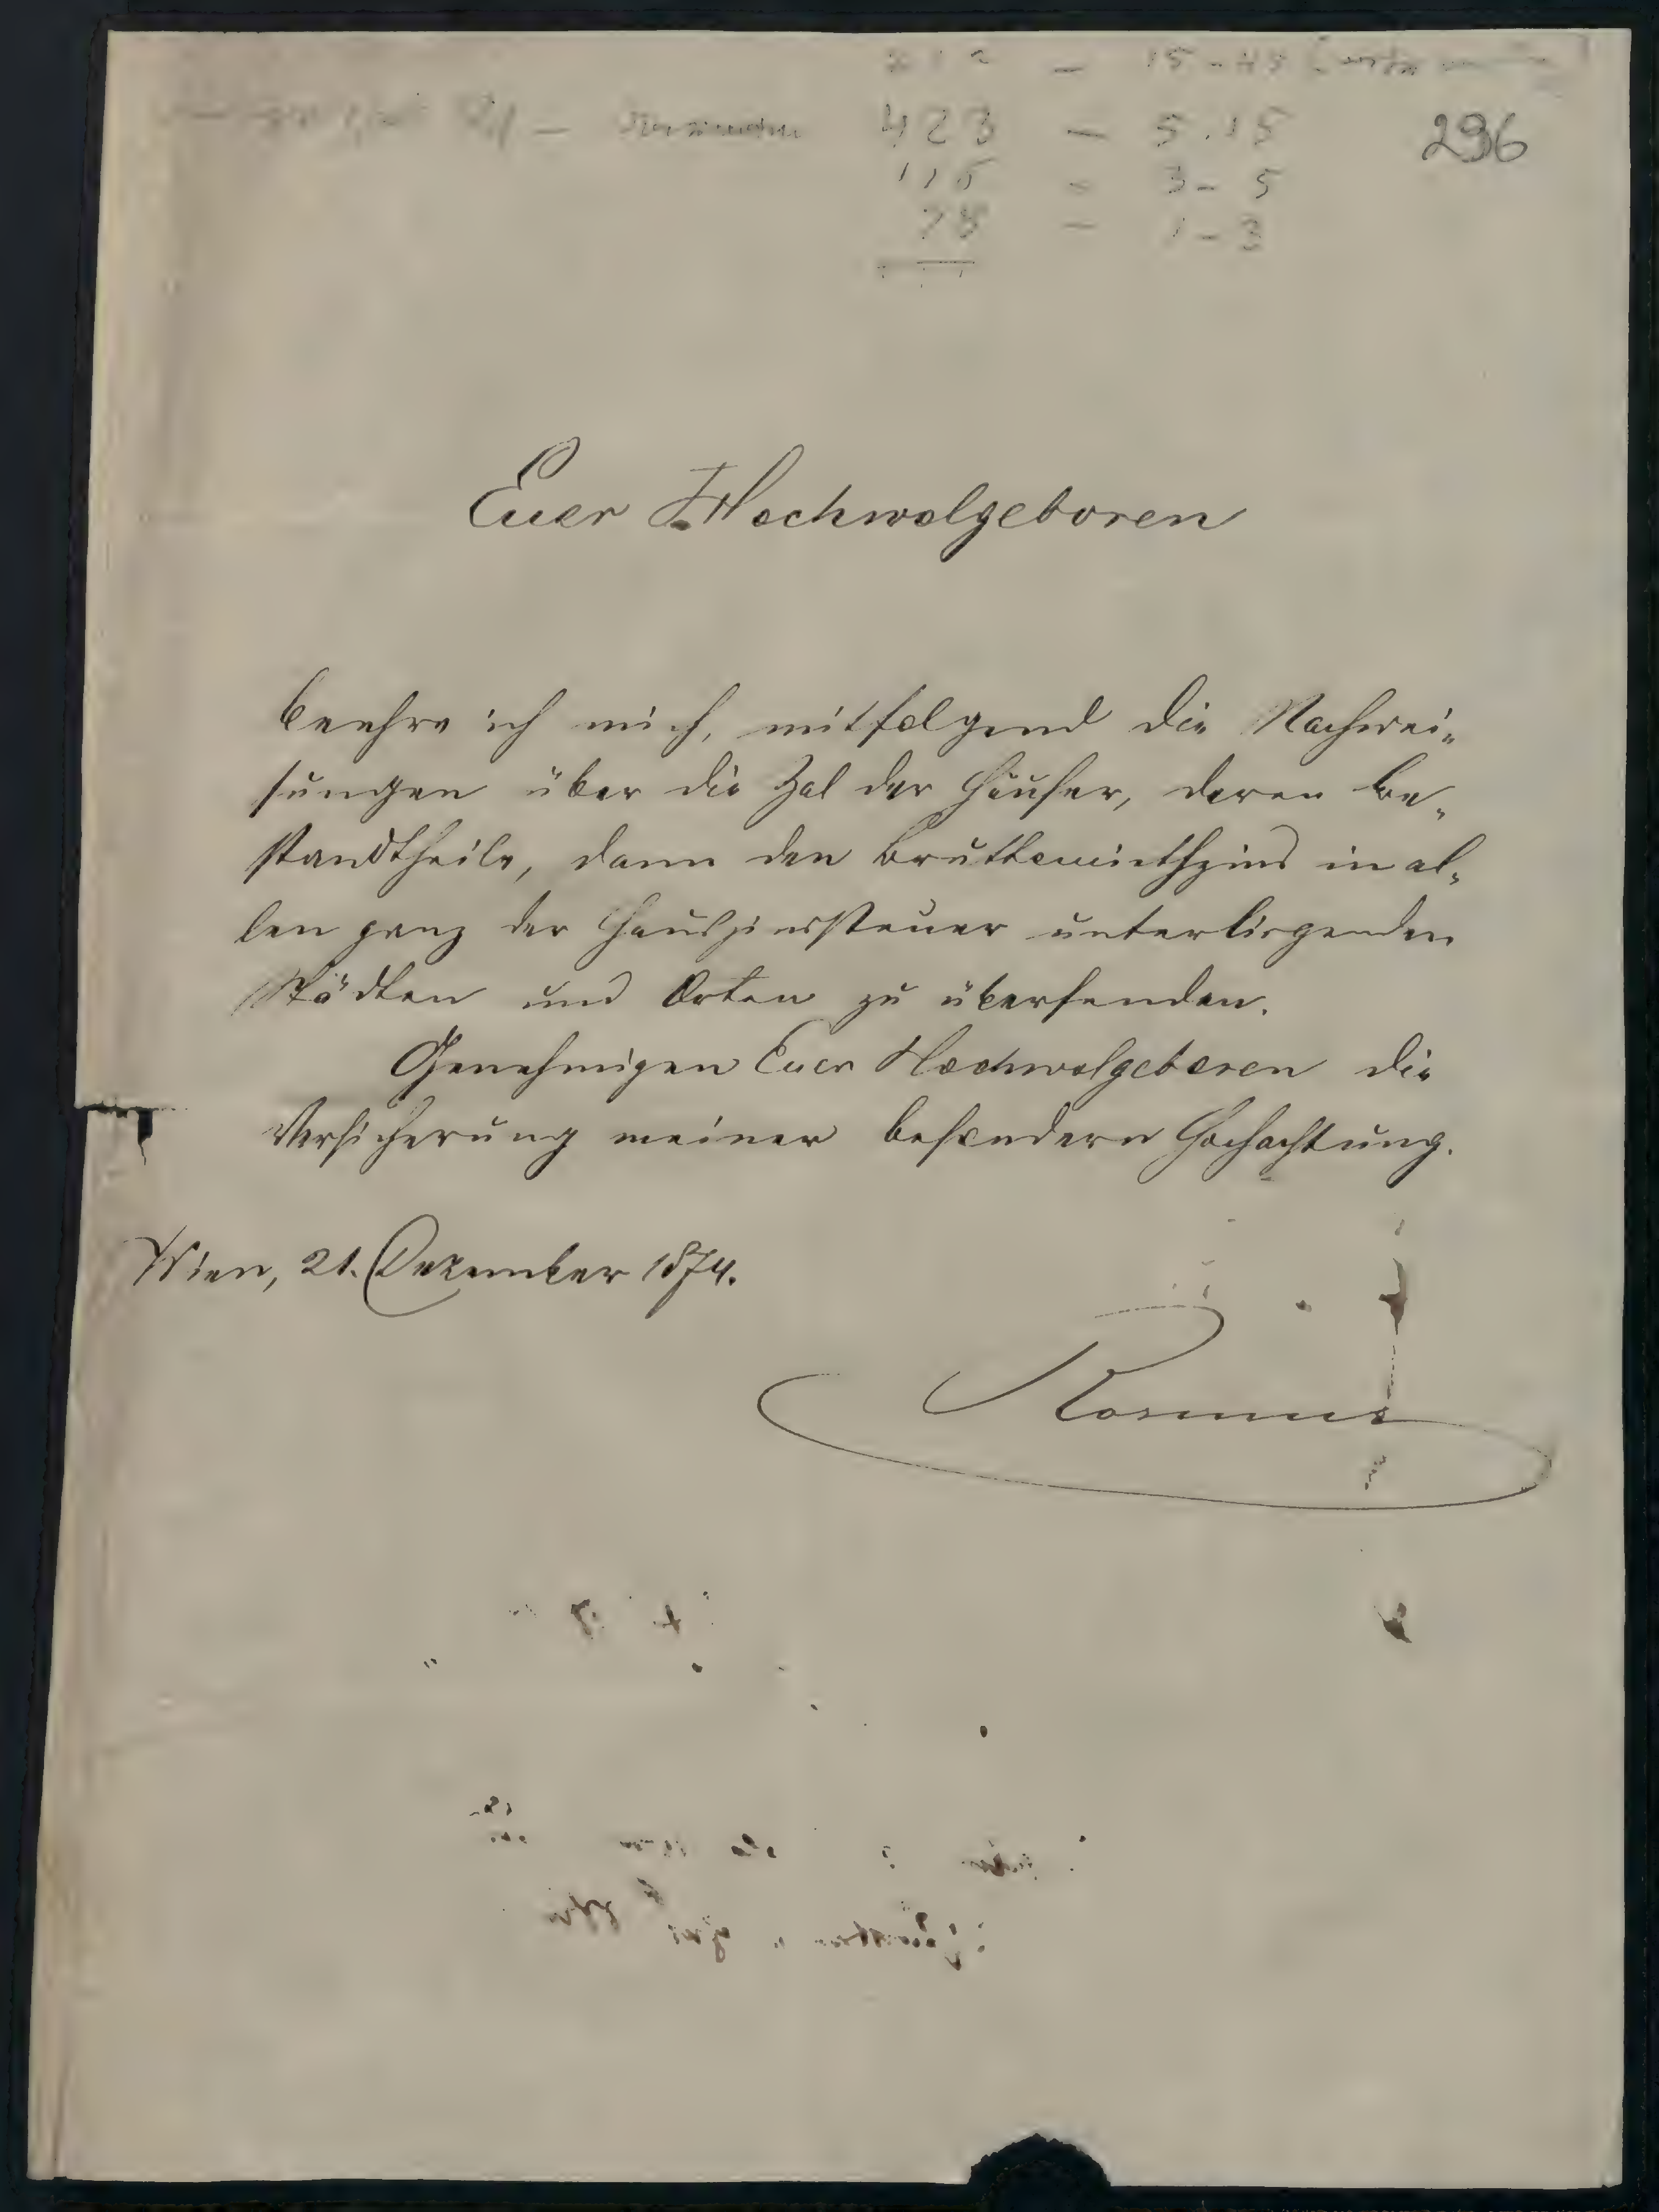 423 — 5.15
296
116 - 3-5
78 - 1-3
Euer Hochwolgeboren
beehre ich mich, mitfolgend die Nachwei-
sungen über die Zal der Häuser, deren Be-
standtheile, dann den Bruttomiethzins in al-
len ganz der Hauszinssteuer unterliegenden
Städten und Orten zu übersenden.
Genehmigen Euer Hochwolgeboren die
Versicherung meiner besondern Hochachtung.
Wien, 21. Dezember 1874.